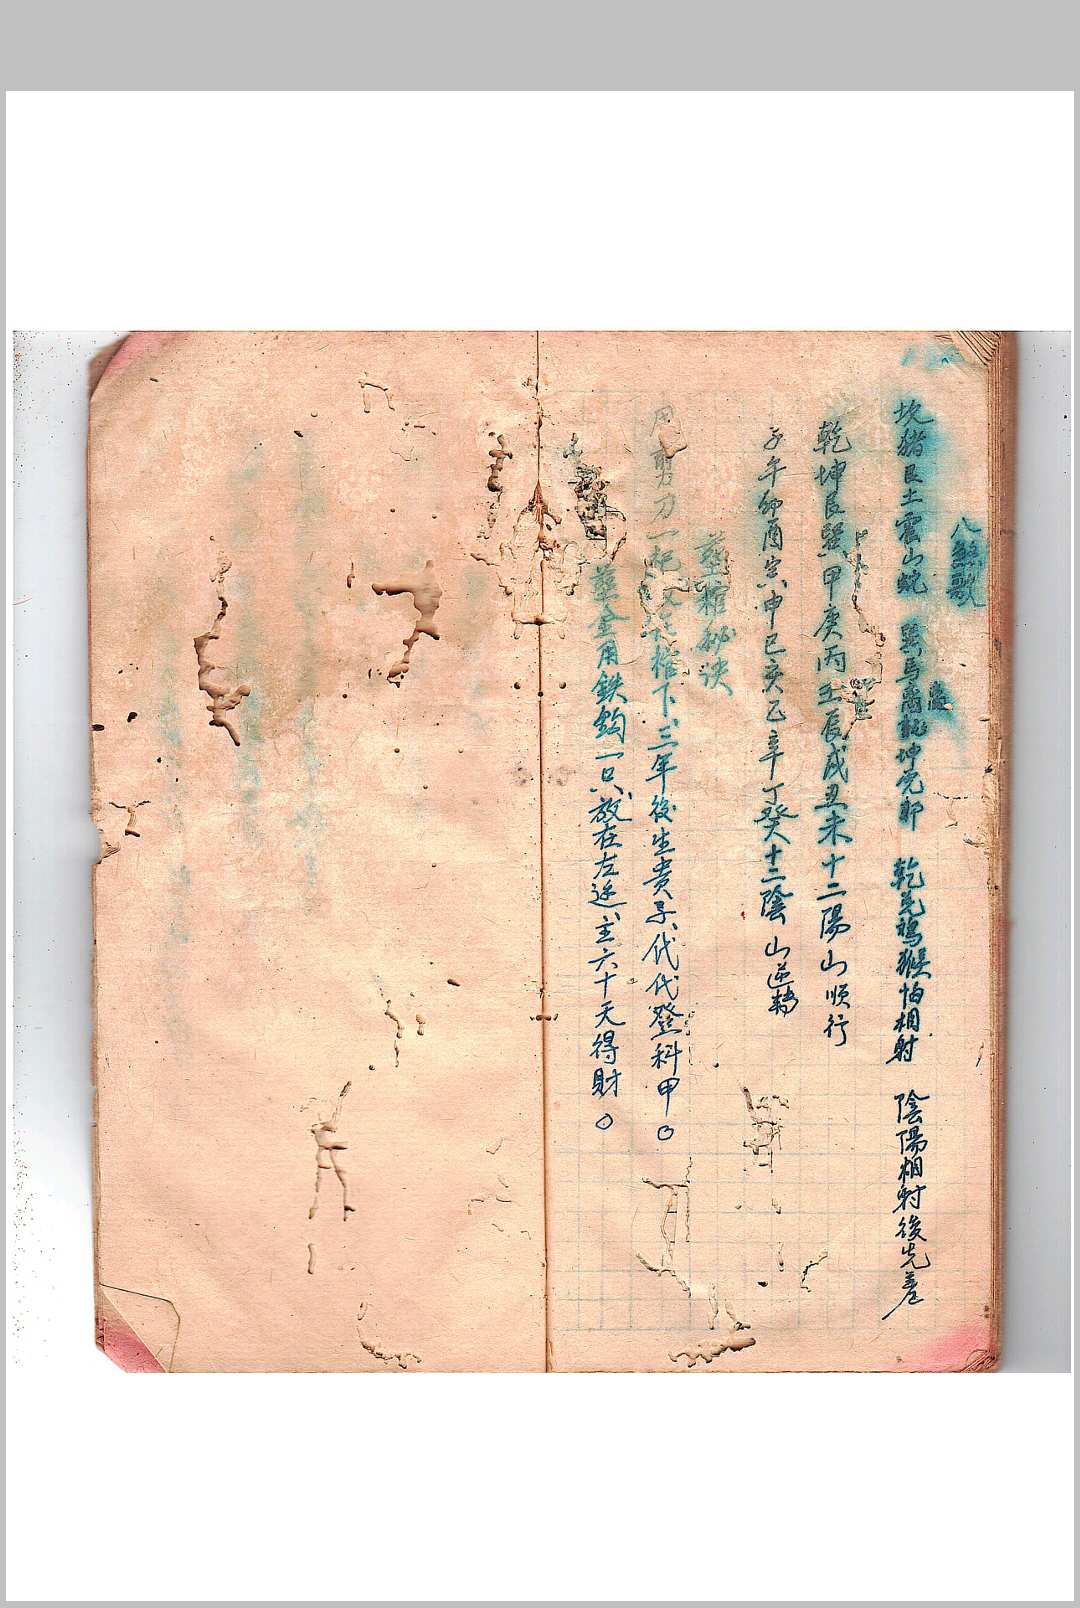 八煞歌
坎猪艮土震山蛇 巽馬離龍坤兔卯 乾兑鸡猴怕相射 陰陽相射後先差
乾坤艮巽甲庚丙壬辰戌丑未十二陽山順行
子午卯酉寅申巳亥乙辛丁癸十二陰山逆轉
葬棺秘诀
用剪刀一把 棺下三年後生貴子代代登科甲。
葬金用鉄鈎一只放在左边主六十天得財。